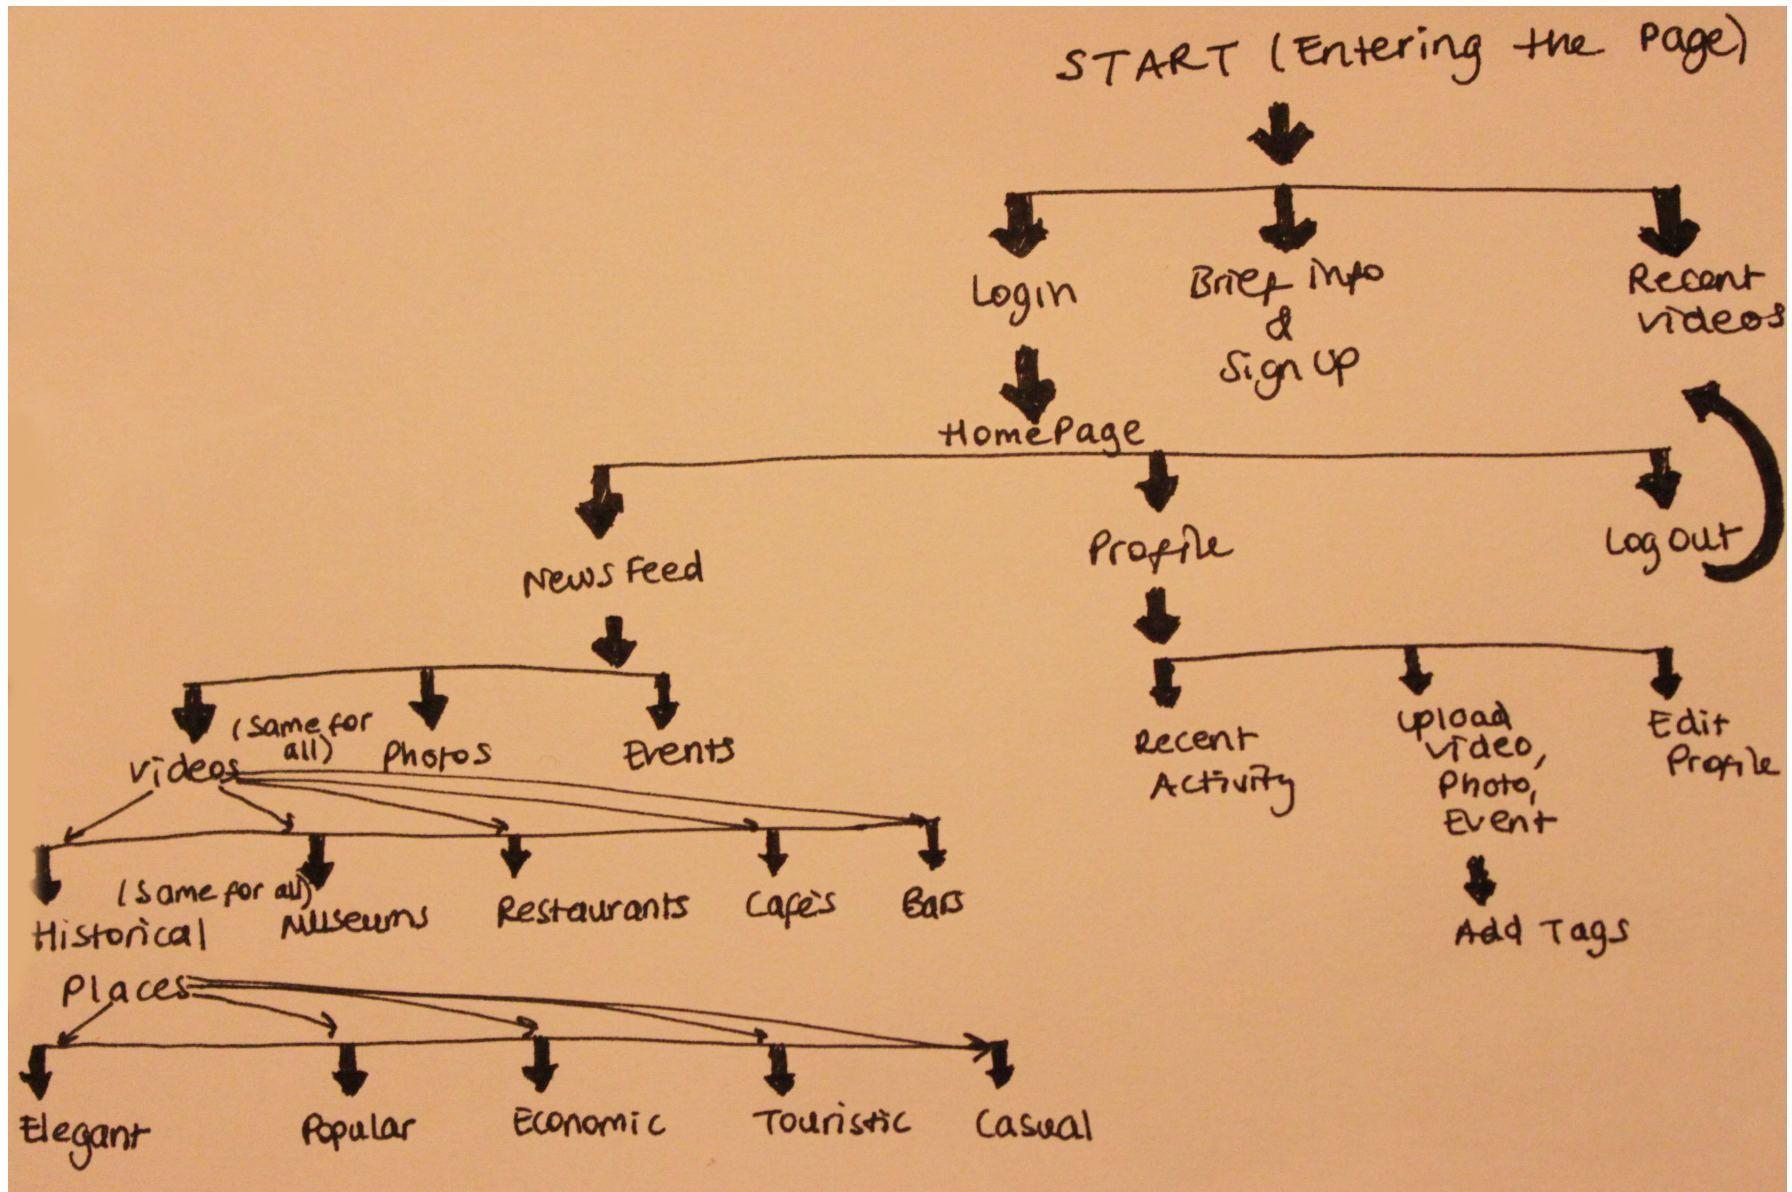 START (Entering the Page)
Login
Brief info
&
Sign Up
Recent
videos
HomePage
News Feed
Profile
Log Out
Videos
(Same for
all)
Photos
Events
Recent
Activity
Upload
Video,
Photo,
Event
Edit
Profile
Add Tags
Historical
Places
(Same for all)
Museums
Restaurants
Cafès
Bars
Elegant
Popular
Economic
Touristic
Casual